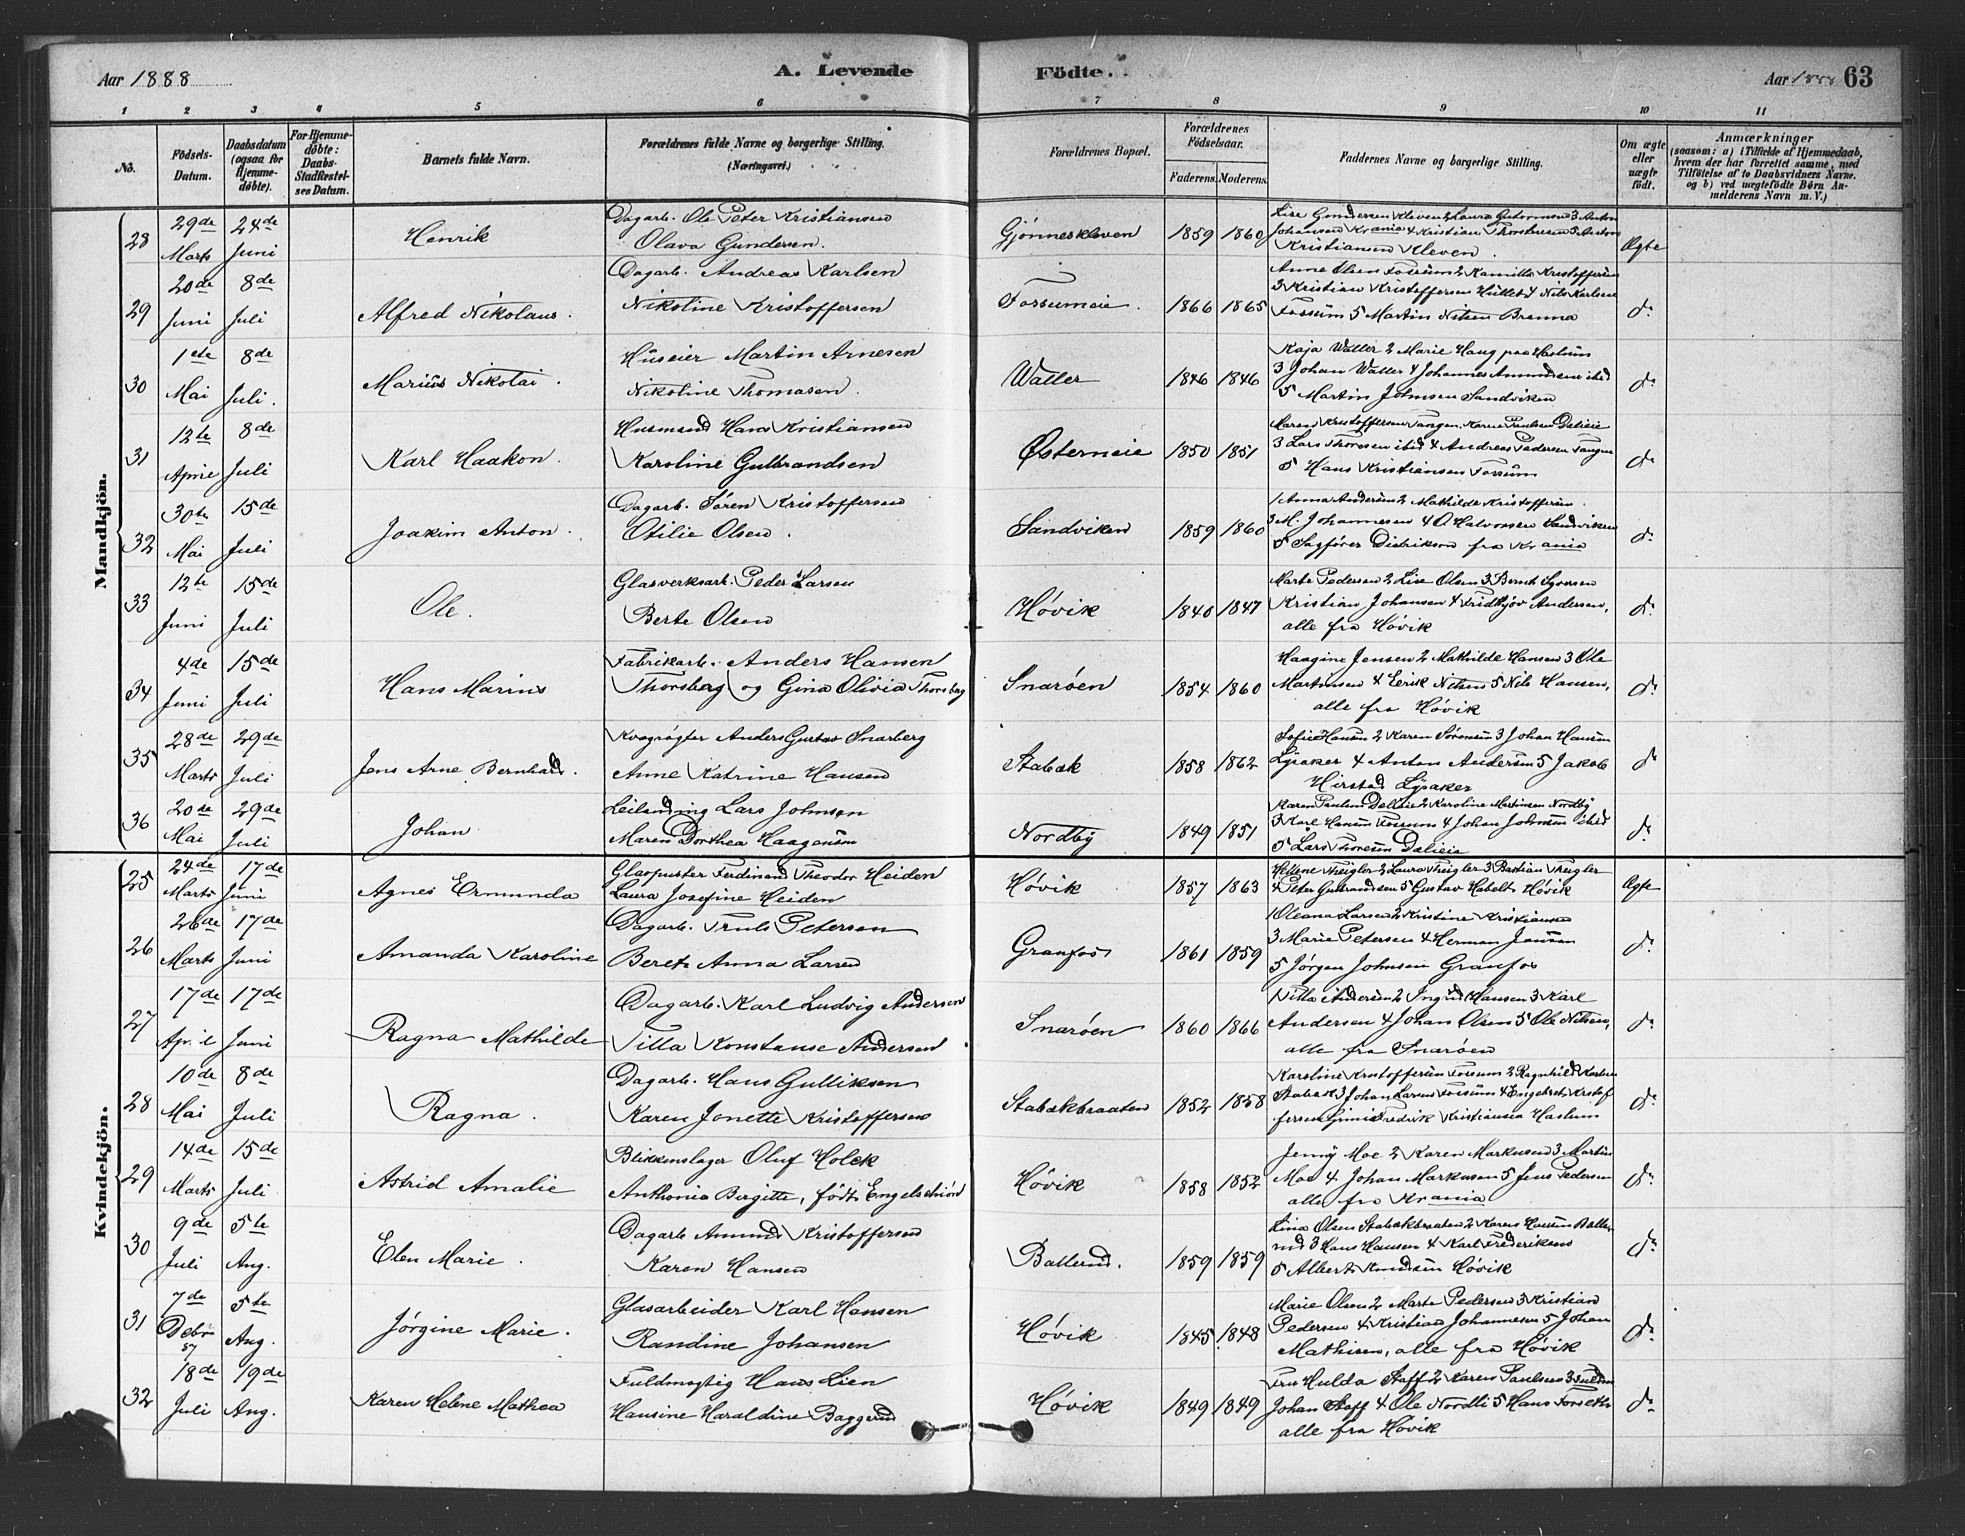 Aar 1888
A. Levende
Födte.
Aar 1888 63
1 2 3 4 5 6 7 8 9 10 11
No.
Födsels-Datum.
Daabsdatum (ogsaa for Hjemme-döbte).
For Hjemme-döbte: Daabs-Stadfæstel-ses Datum.
Barnets fulde Navn.
Forældrenes fulde Navne og borgerlige Stilling. (Næringsvei.)
Forældrenes Bopæl.
Forældrenes Födselsaar.
Faderens. Moderens.
Faddernes Navne og borgerlige Stilling.
Om ægte eller uægte födt.
Anmærkninger
(saasom: a) i Tilfælde af Hjemmedaab,
hvem der har forrettet samme, med
Tilföielse af to Daabsvidners Navne.
og b) ved uægtefödte Börn An-
melderens Navn m. V.)
Mandkjön.
28 29de Marts 24de Juni Henrik
Dagarb. Ole Peter Kristiansen
Olava Gundersen.
Gjønneskleven 1859 1860
Lise Gundersen Kleven 2 Laura Guttormsen 3 Anton
Johansen Krania 4 Kristian Thorstensen 5 Anton
Kristiansen Kleven.
Ægte
29 20de Juni 8de Juli Alfred Nikolaus.
Dagarb. Andreas Karlsen
Nikoline Kristoffersen
Fossumeie. 1866 1865
Anne Olsen Fossum 2 Kamilla Kristoffersen
3 Kristian Kristoffersen Hullet 4 Nils Karlsen
Fossum 5 Martin Nilsen Brenna
do
30 1ste Mai 8de Juli. Marius Nikolai.
Huseier Martin Arnesen
Nikoline Thomasen.
Waller 1846 1846
Kaja Waller 2 Marie Haug paa Haslum
3 Johan Waller 4 Johannes Amundsen ibid
5 Martin Johnsen Sandviken
do
31 12te April 8de Juli Karl Haakon.
Husmand Hans Kristiansen
Karoline Gulbrandsen
Østerneie 1850 1851
Maren Kristoffersen Tangen. Karen Paulsen Daleie
3 Lars Thoresen ibid 4 Andreas Pedersen Tangen
5 Hans Kristiansen Fossum
do
32 30te Mai 15de Juli Joakim Anton.
Dagarb. Søren Kristoffersen
Otilie Olsen.
Sandviken 1859 1860
1 Anna Andersen 2 Mathilde Kristoffersen.
3 M. Johannesen 4 O. Halvorsen Sandviken
5 Sagfører Didrikson fra Krania
do
33 12te Juni 15de Juli Ole.
Glasverksarb. Peder Larsen
Berte Olsen
Høvik 1840 1847
Marte Pedersen 2 Lise Olsen 3 Bernt Syversen
Kristian Johansen 4 Fridtjov Andersen,
alle fra Høvik
do
34 4de Juni 15de Juli Hans Marius
Fabrikarb. Anders Hansen
Thorsberg og Gina Olivia Thorsberg
Snarøen 1854 1860
Haagine Jensen 2 Mathilde Hansen 3 Ole
Martinsen 4 Eerik Nilsen 5 Nils Hansen,
alle fra Høvik
do
35 28de Marts 29de Juli Jens Arne Bernhard.
Kvægrøgter Anders Gustav Snarberg
Anne Katrine Hansen
Stabæk 1858 1862
Sofie Hansen 2 Karen Sørensen 3 Johan Hansen
Lysaker 4 Anton Andersen 5 Jakob
Hirstad Lysaker
do
36 20de Mai 29de Juli Johan
Leilænding Lars Johnsen
Maren Dorthea Haagensen
Nordby 1849 1851
Karen Paulsen Daleie 2 Karoline Martinsen Nordby
3 Karl Hansen Fossum 4 Johan Johnsen ibid
5 Lars Thoresen Daleie
do
Kvindekjön.
25 24de Marts 17de Juni Agnes Ermunda
Glaspuster Ferdinand Theodor Heiden
Laura Josefine Heiden
Høvik 1857 1863
Hellene Theigler 2 Laura Theigler 3 Bastian Theigler
4 Peter Gulbrandsen 5 Gustav Habelt Høvik
Ægte
26 26de Marts 17de Juni Amanda Karoline
Dagarb. Truls Petersen
Beret Anna Larsen
Granfos 1861 1859
1 Oleana Larsen 2 Kristine Kristiansen
3 Marie Petersen 4 Herman Jansen
5 Jørgen Johnsen Granfos
do
27 17de April 17de Juni Ragna Mathilde
Dagarb. Karl Ludvig Andersen
Tilla Konstanse Andersen
Snarøen 1860 1866
1 Tilla Andersen 2 Ingrid Hansen 3 Karl
Andersen 4 Johan Olsen 5 Ole Nilsen,
alle fra Snarøen
do
28 10de Mai 8de Juli Ragna.
Dagarb. Hans Gulliksen
Karen Jonette Kristoffersen
Stabækbraaten 1852 1858
Karoline Kristoffersen Fossum 2 Ragnhild Karlsen
Stabæk 3 Johan Larsen Fossum 4 Engebret Kristof
fersen Fredrik Kristiansen Haslum
do
29 14de Marts 15de Juli Astrid Amalie
Blikkenslager Oluf Holck
Anthonia Birgitte, født Engelschiøn
Høvik 1858 1852
Jenny Moe 2 Karen Markusen 3 Martin
Moe 4 Johan Markusen 5 Jens Pedersen
alle fra Krania
do
30 9de Juli 5te Aug. Elen Marie.
Dagarb Amund Kristoffersen
Karen Hansen
Ballerud. 1859 1859
Lina Olsen Stabækbraaten 2 Karen Hansen Balle-
rud 3 Hans Hansen 4 Karl Frederiksen
5 Albert Knudsen Høvik
do
31 7de Debr 87 5te Aug. Jørgine Marie.
Glasarbeider Karl Hansen
Randine Johansen
Høvik 1845 1848
Marie Olsen 2 Marte Pedersen 3 Kristian
Pedersen 4 Kristian Johannesen 5 Johan
Mathisen, alle fra Høvik
do
32 18de Juli 19de Aug. Karen Helene Mathea
Fuldmægtig Hans Lien
Hansine Haraldine Baggerud
Høvik 1849 1849
Fru Hulda Staff 2 Karen Paulsen 3 Fuldm
Johan Staff 4 Ole Nordli 5 Hans Forseth
alle fra Høvik
do